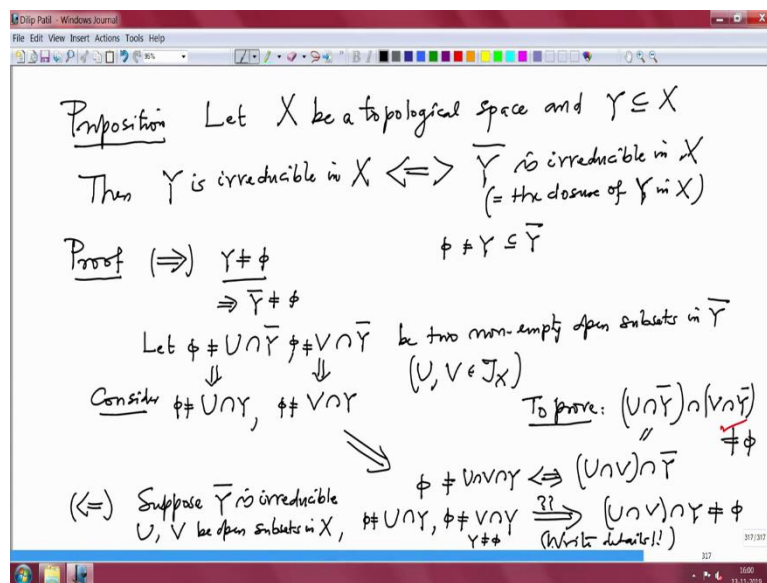 Dilip Patil - Windows Journal
File Edit View Insert Actions Tools Help
Proposition Let X be a topological space and Y ⊆ X
Then Y is irreducible in X <=> Y̅ is irreducible in X
(= the closure of Y in X)
Proof (⇒) Y ≠ ϕ
ϕ ≠ Y ⊆ Y̅
⇒ Y̅ ≠ ϕ
Let ϕ ≠ U∩Y̅, ϕ ≠ V∩Y̅ be two non-empty open subsets in Y̅
⇓ ⇓ (U, V ∈ J_X)
Consider ϕ ≠ U∩Y, ϕ ≠ V∩Y
To prove: (U∩Y̅)∩(V∩Y̅)
≠ ϕ
ϕ ≠ U∩V∩Y <=> (U∩V)∩Y̅
(<=) Suppose Y̅ is irreducible
U, V be open subsets in X, ϕ ≠ U∩Y, ϕ ≠ V∩Y ??⇒ (U∩V)∩Y ≠ ϕ
Y ≠ ϕ (Write details!!)
317/317
317
16:00